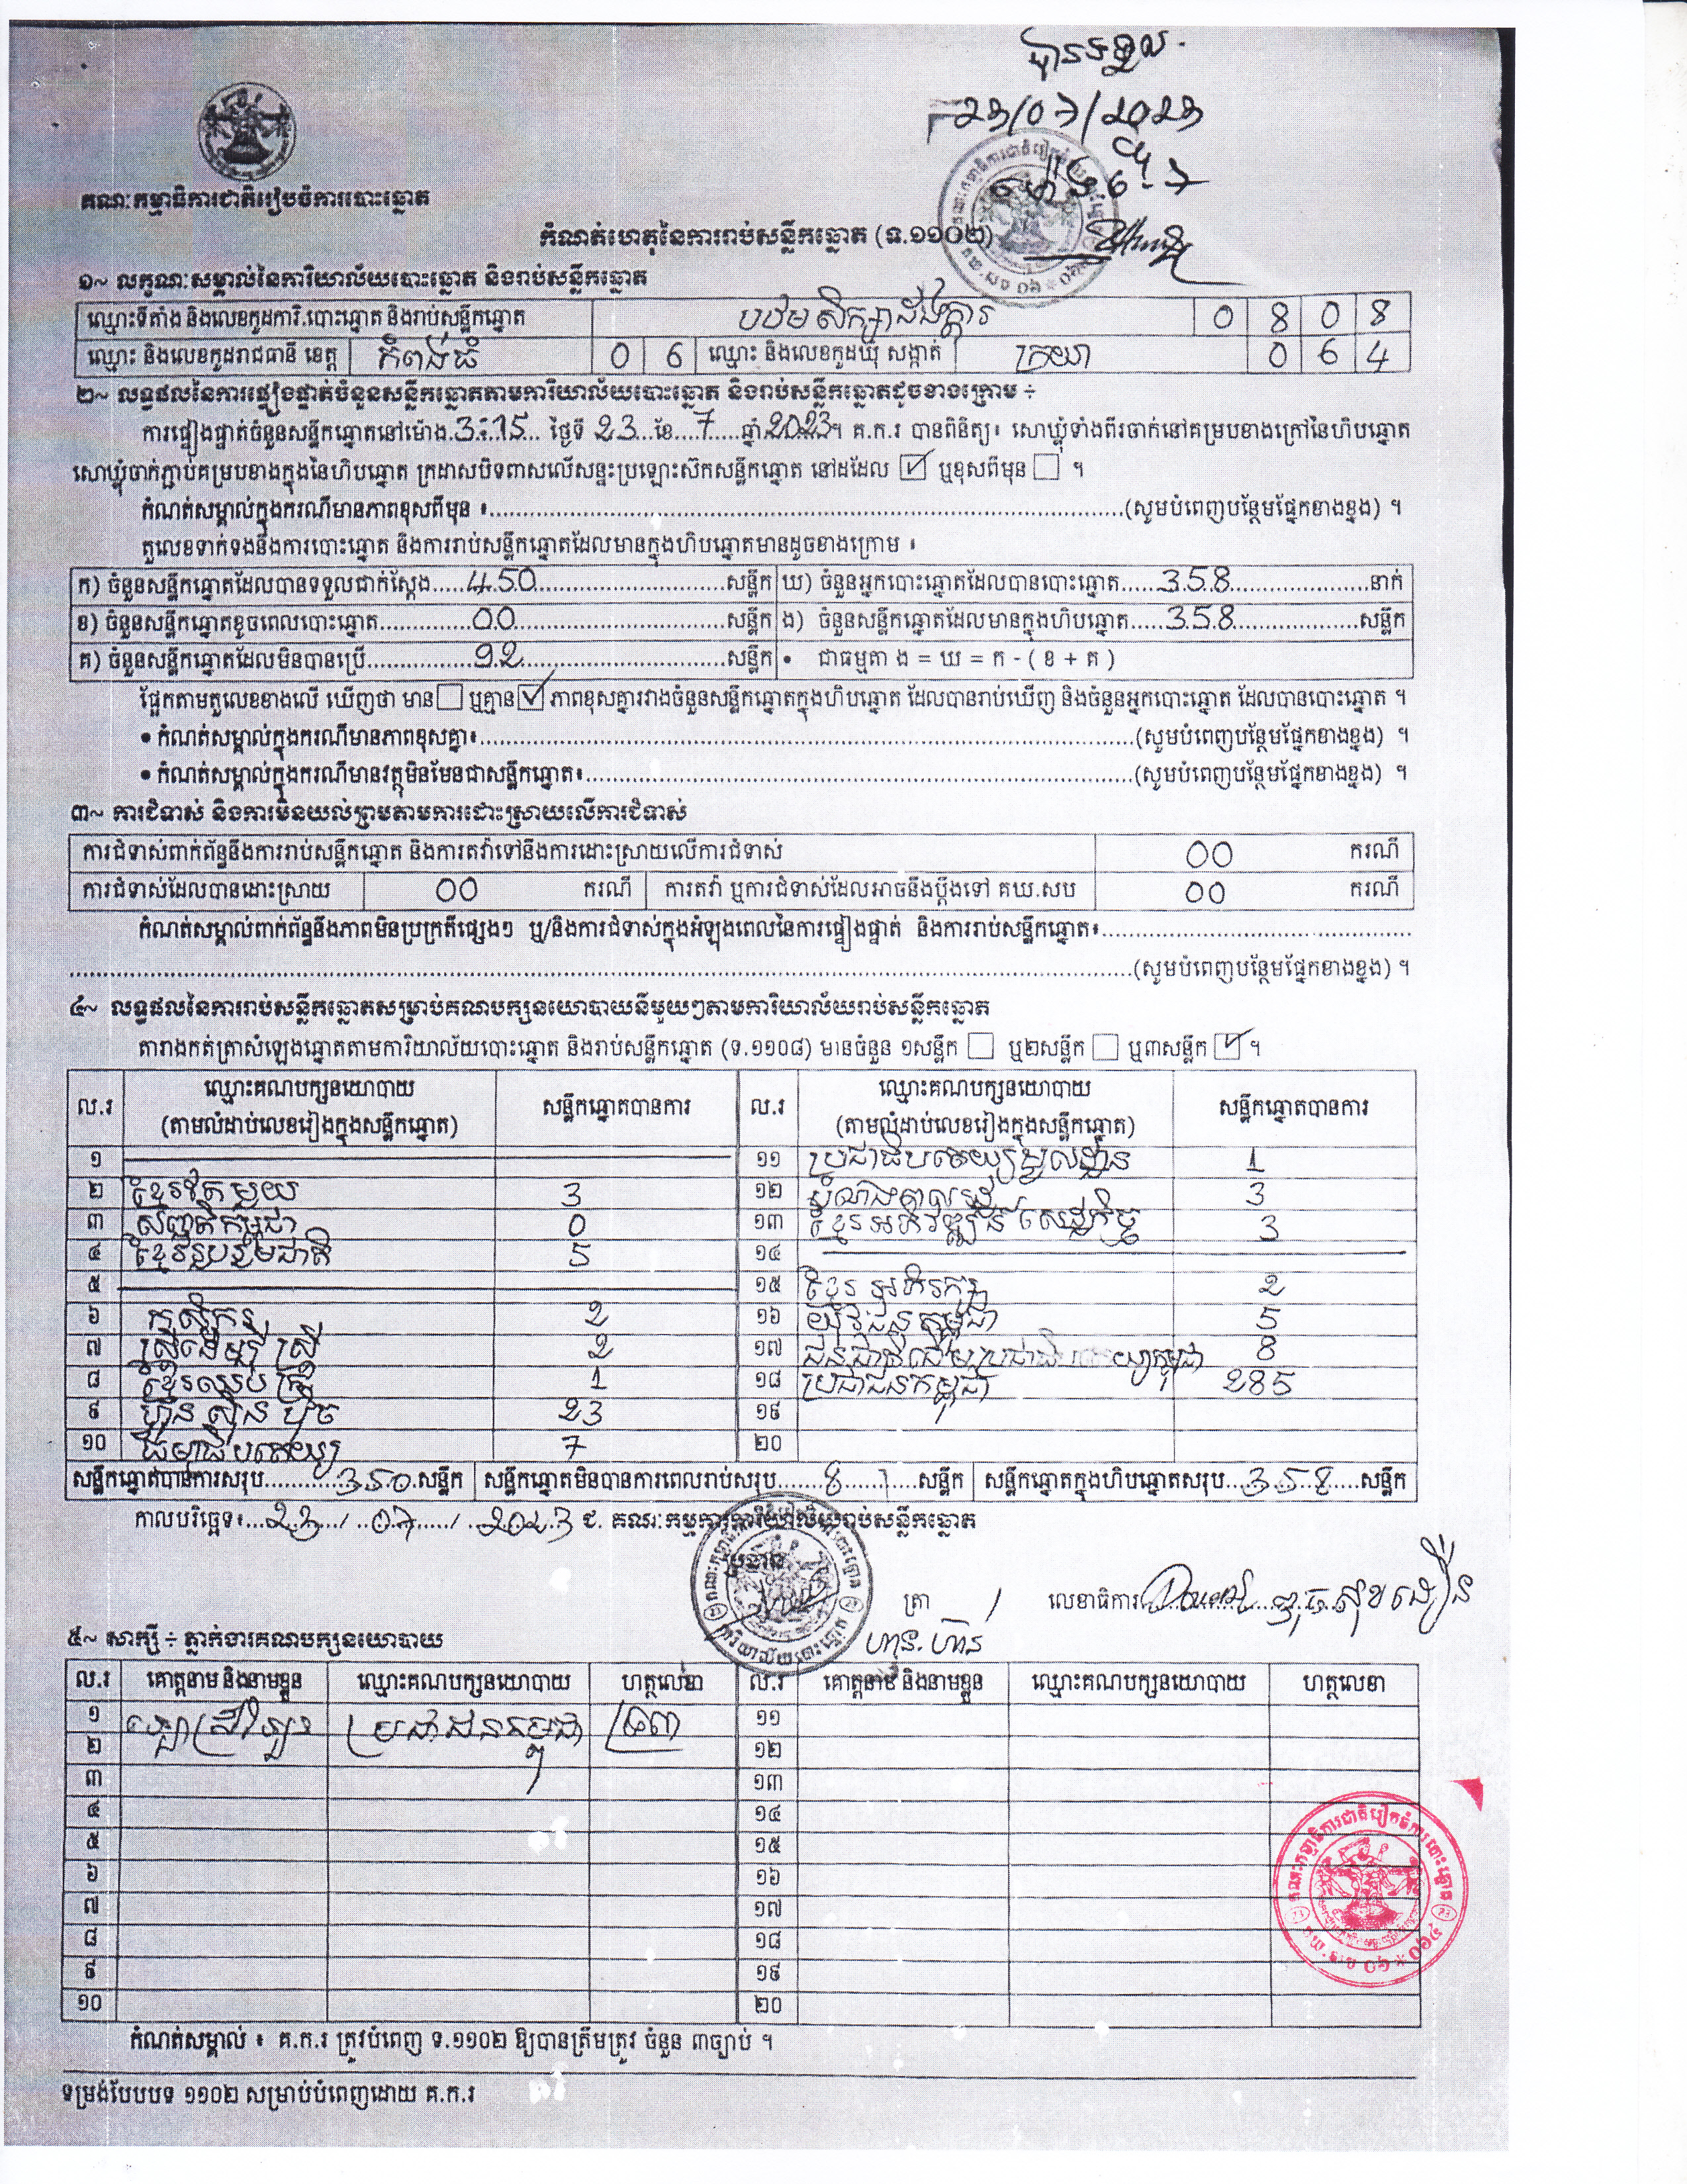 បានទទួល
23/07/2023
គណៈកម្មាធិការជាតិរៀបចំការបោះឆ្នោត
កំណត់ហេតុនៃការរាប់សន្លឹកឆ្នោត (ទ.១១០២)
១~ លក្ខណៈសម្គាល់នៃការិយាល័យបោះឆ្នោត និងរាប់សន្លឹកឆ្នោត
ឈ្មោះទីតាំង និងលេខកូដការិ.បោះឆ្នោត និងរាប់សន្លឹកឆ្នោត បឋមសិក្សា 0 8 0 8
ឈ្មោះ និងលេខកូដរាជធានី ខេត្ត កំពង់ធំ 0 6 ឈ្មោះ និងលេខកូដឃុំ សង្កាត់ ក្រយា 0 6 4
២~ លទ្ធផលនៃការផ្ទៀងផ្ទាត់ចំនួនសន្លឹកឆ្នោតតាមការិយាល័យបោះឆ្នោត និងរាប់សន្លឹកឆ្នោតដូចខាងក្រោម ÷
ការផ្ទៀងផ្ទាត់ចំនួនសន្លឹកឆ្នោតនៅម៉ោង.3:15... ថ្ងៃទី 23...ខែ....7.....ឆ្នាំ.2023។ គ.ក.រ បានពិនិត្យ៖ សោឃ្លុំទាំងពីរចាក់នៅគម្របខាងក្រៅនៃហិបឆ្នោត
សោឃ្លុំចាក់ភ្ជាប់គម្របខាងក្នុងនៃហិបឆ្នោត ក្រដាសបិទពាសលើសន្ទះប្រឡោះស៊កសន្លឹកឆ្នោត នៅដដែល ☑ ឬខុសពីមុន ☐ ។
កំណត់សម្គាល់ក្នុងករណីមានភាពខុសពីមុន ៖.....(សូមបំពេញបន្ថែមផ្នែកខាងខ្នង) ។
តួលេខទាក់ទងនឹងការបោះឆ្នោត និងការរាប់សន្លឹកឆ្នោតដែលមានក្នុងហិបឆ្នោតមានដូចខាងក្រោម ៖
ក) ចំនួនសន្លឹកឆ្នោតដែលបានទទួលជាក់ស្តែង.....450.....សន្លឹក ឃ) ចំនួនអ្នកបោះឆ្នោតដែលបានបោះឆ្នោត.....358.....នាក់
ខ) ចំនួនសន្លឹកឆ្នោតខូចពេលបោះឆ្នោត.....00.....សន្លឹក ង) ចំនួនសន្លឹកឆ្នោតដែលមានក្នុងហិបឆ្នោត.....358.....សន្លឹក
គ) ចំនួនសន្លឹកឆ្នោតដែលមិនបានប្រើ.....92.....សន្លឹក • ជាធម្មតា ង = ឃ = ក - ( ខ + គ )
ផ្អែកតាមតួលេខខាងលើ ឃើញថា មាន ☐ ឬគ្មាន ☑ ភាពខុសគ្នារវាងចំនួនសន្លឹកឆ្នោតក្នុងហិបឆ្នោត ដែលបានរាប់ឃើញ និងចំនួនអ្នកបោះឆ្នោត ដែលបានបោះឆ្នោត ។
• កំណត់សម្គាល់ក្នុងករណីមានភាពខុសគ្នា៖.....(សូមបំពេញបន្ថែមផ្នែកខាងខ្នង) ។
• កំណត់សម្គាល់ក្នុងករណីមានវត្ថុមិនមែនជាសន្លឹកឆ្នោត៖.....(សូមបំពេញបន្ថែមផ្នែកខាងខ្នង) ។
៣~ ការជំទាស់ និងការមិនយល់ព្រមតាមការដោះស្រាយលើការជំទាស់
ការជំទាស់ពាក់ព័ន្ធនឹងការរាប់សន្លឹកឆ្នោត និងការតវ៉ាទៅនឹងការដោះស្រាយលើការជំទាស់ 00 ករណី
ការជំទាស់ដែលបានដោះស្រាយ 00 ករណី ការតវ៉ា ឬការជំទាស់ដែលអាចនឹងប្តឹងទៅ គឃ.សប 00 ករណី
កំណត់សម្គាល់ពាក់ព័ន្ធនឹងភាពមិនប្រក្រតីផ្សេងៗ ឬ/និងការជំទាស់ក្នុងអំឡុងពេលនៃការផ្ទៀងផ្ទាត់ និងការរាប់សន្លឹកឆ្នោត៖.....
.....(សូមបំពេញបន្ថែមផ្នែកខាងខ្នង) ។
៤~ លទ្ធផលនៃការរាប់សន្លឹកឆ្នោតសម្រាប់គណបក្សនយោបាយនីមួយៗតាមការិយាល័យរាប់សន្លឹកឆ្នោត
តារាងកត់ត្រាសំឡេងឆ្នោតតាមការិយាល័យបោះឆ្នោត និងរាប់សន្លឹកឆ្នោត (ទ.១១០៨) មានចំនួន ១សន្លឹក ☐ ឬ២សន្លឹក ☐ ឬ៣សន្លឹក ☑ ។
ល.រ ឈ្មោះគណបក្សនយោបាយ (តាមលំដាប់លេខរៀងក្នុងសន្លឹកឆ្នោត) សន្លឹកឆ្នោតបានការ ល.រ ឈ្មោះគណបក្សនយោបាយ (តាមលំដាប់លេខរៀងក្នុងសន្លឹកឆ្នោត) សន្លឹកឆ្នោតបានការ
១ ១១ ប្រជាធិបតេយ្យមូលដ្ឋាន 1
២ ខ្មែរតែមួយ 3 ១២ 3
៣ សញ្ជាតិកម្ពុជា 0 ១៣ ខ្មែរអភិវឌ្ឍន៍សេដ្ឋកិច្ច 3
៤ ខ្មែររួបរួមជាតិ 5 ១៤
៥ ១៥ ខ្មែរអភិរក្ស 2
៦ កសិករ 2 ១៦ យុវជនកម្ពុជា 5
៧ ស្ត្រីដើម្បីស្ត្រី 2 ១៧ ជនជាតិដើមប្រជាធិបតេយ្យកម្ពុជា 8
៨ ខ្មែរឈប់ក្រ 1 ១៨ ប្រជាជនកម្ពុជា 285
៩ ហ៊្វុនស៊ិនប៉ិច 23 ១៩
១០ ធម្មាធិបតេយ្យ 7 ២០
សន្លឹកឆ្នោតបានការសរុប.....350.សន្លឹក សន្លឹកឆ្នោតមិនបានការពេលរាប់សរុប.....8.....សន្លឹក សន្លឹកឆ្នោតក្នុងហិបឆ្នោតសរុប...358.....សន្លឹក
កាលបរិច្ឆេទ៖...23.../...07.../...2023 ជ. គណៈកម្មការការិយាល័យរាប់សន្លឹកឆ្នោត
ប្រធាន ត្រា លេខាធិការ
៥~ សាក្សី ÷ ភ្នាក់ងារគណបក្សនយោបាយ
ល.រ គោត្តនាម និងនាមខ្លួន ឈ្មោះគណបក្សនយោបាយ ហត្ថលេខា ល.រ គោត្តនាម និងនាមខ្លួន ឈ្មោះគណបក្សនយោបាយ ហត្ថលេខា
១ ប្រជាជនកម្ពុជា ១១
២ ១២
៣ ១៣
៤ ១៤
៥ ១៥
៦ ១៦
៧ ១៧
៨ ១៨
៩ ១៩
១០ ២០
កំណត់សម្គាល់ ៖ គ.ក.រ ត្រូវបំពេញ ទ.១១០២ ឱ្យបានត្រឹមត្រូវ ចំនួន ៣ច្បាប់ ។
ទម្រង់បែបបទ ១១០២ សម្រាប់បំពេញដោយ គ.ក.រ